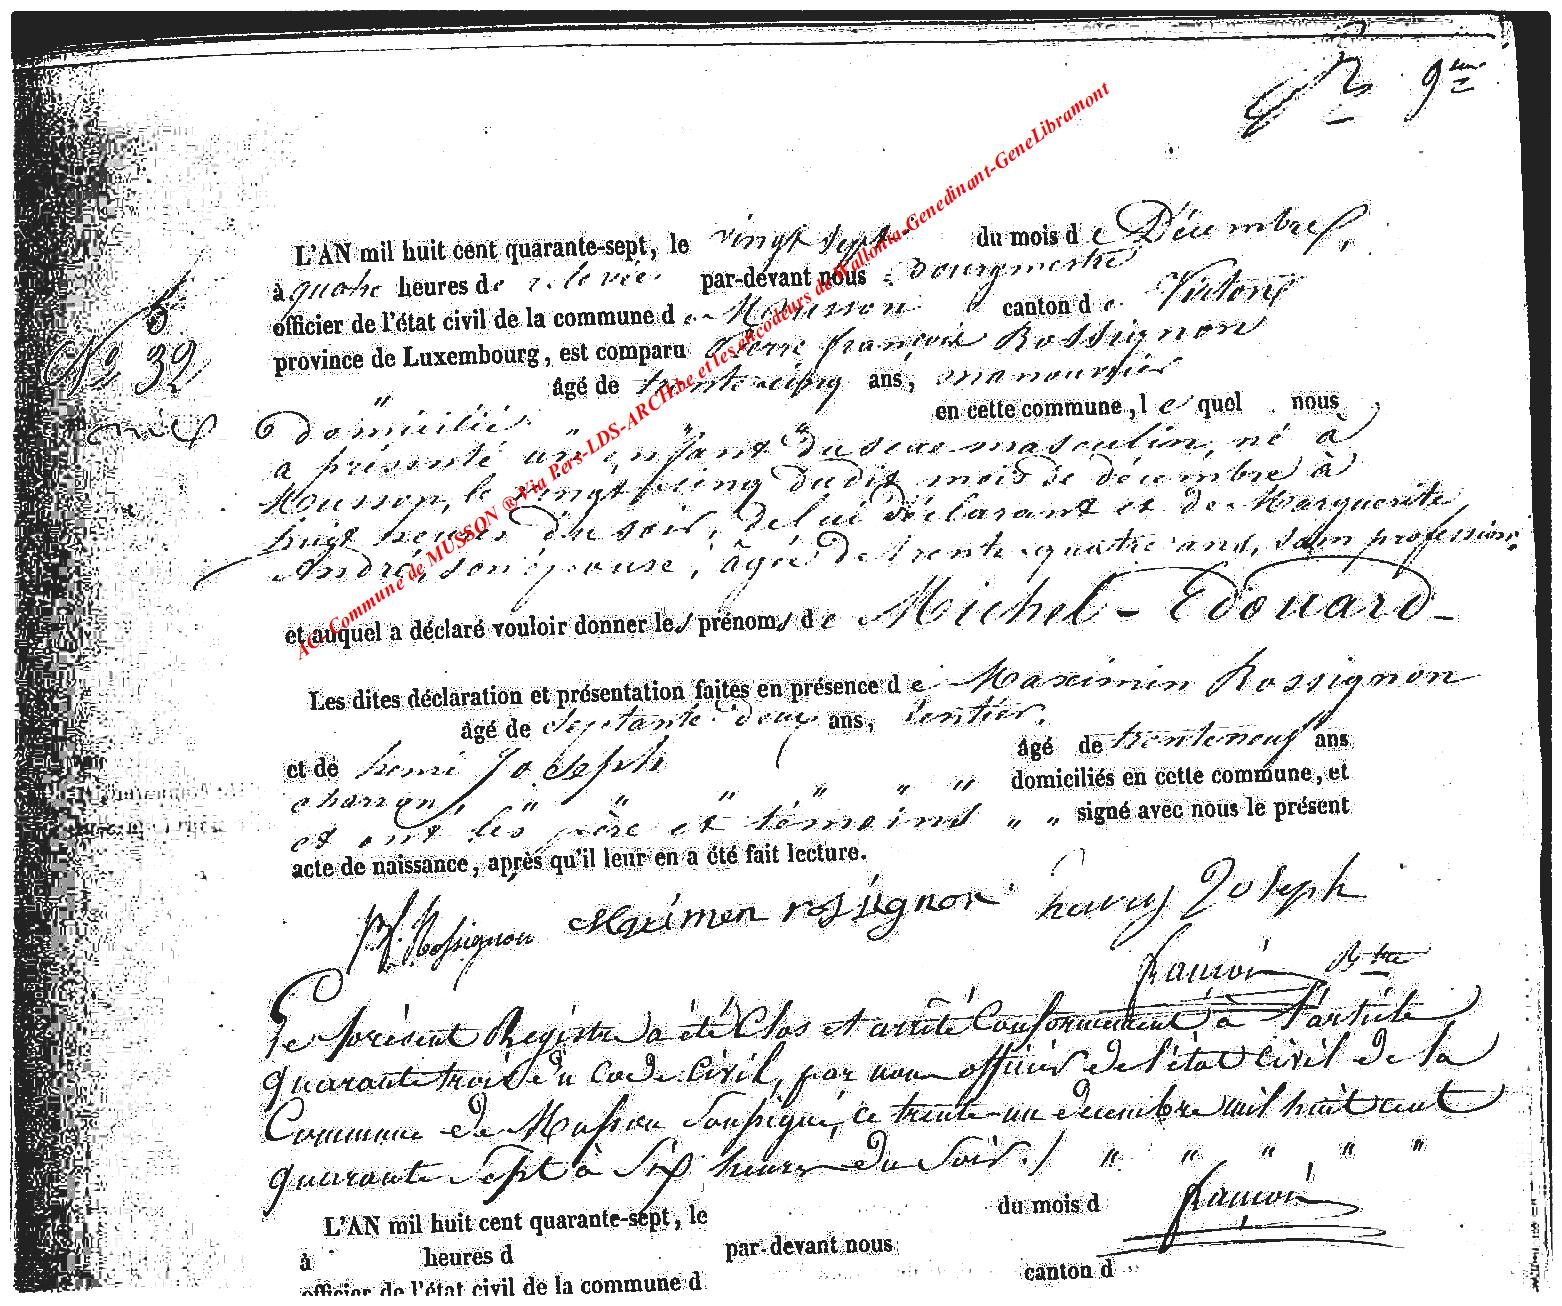 9me
L'AN mil huit cent quarante-sept, le vingt sept du mois de Décembre,
à quatre heures de relevée par-devant nous Bourgmestre
officier de l'état civil de la commune de Musson canton de Virton
province de Luxembourg, est comparu Pierre françois Rossignon
âgé de trente cinq ans, manouvrier
N° 32
domicilié " " " en cette commune, lequel nous
a présenté un enfant du sexe masculin, né à
Musson, le vingt cinq dudit mois de décembre à
huit heures du soir, de lui déclarant et de Marguerite
André, son épouse, âgée de trente quatre ans, sans profession
et auquel a déclaré vouloir donner les prénoms de Michel - Edouard -
Les dites déclaration et présentation faites en présence de Maximin Rossignon
âgé de septante deux ans, rentier.
et de henri Joseph âgé de trente neuf ans
charron, " " " " " " domiciliés en cette commune, et
et ont les père et témoins " " signé avec nous le présent
acte de naissance, après qu'il leur en a été fait lecture.
p.f. Rossignon Maximen rossignon henry Joseph
françois Btre
Le présent Registre a été Clos et arrêté Conformément à l'article
quarante trois du Code Civil, par nous officier de l'état civil de la
Commune de Musson Soussigné, ce trente-un décembre mil huit cent
quarante Sept à Six heures du Soir. / " " " " "
françois
L'AN mil huit cent quarante-sept, le du mois d
à heures d par-devant nous
officier de l'état civil de la commune d canton d
AC - Commune de MUSSON ® Via Pers-LDS-ARCH.be et les encodeurs de Wallonia-Genedinant-GeneLibramont